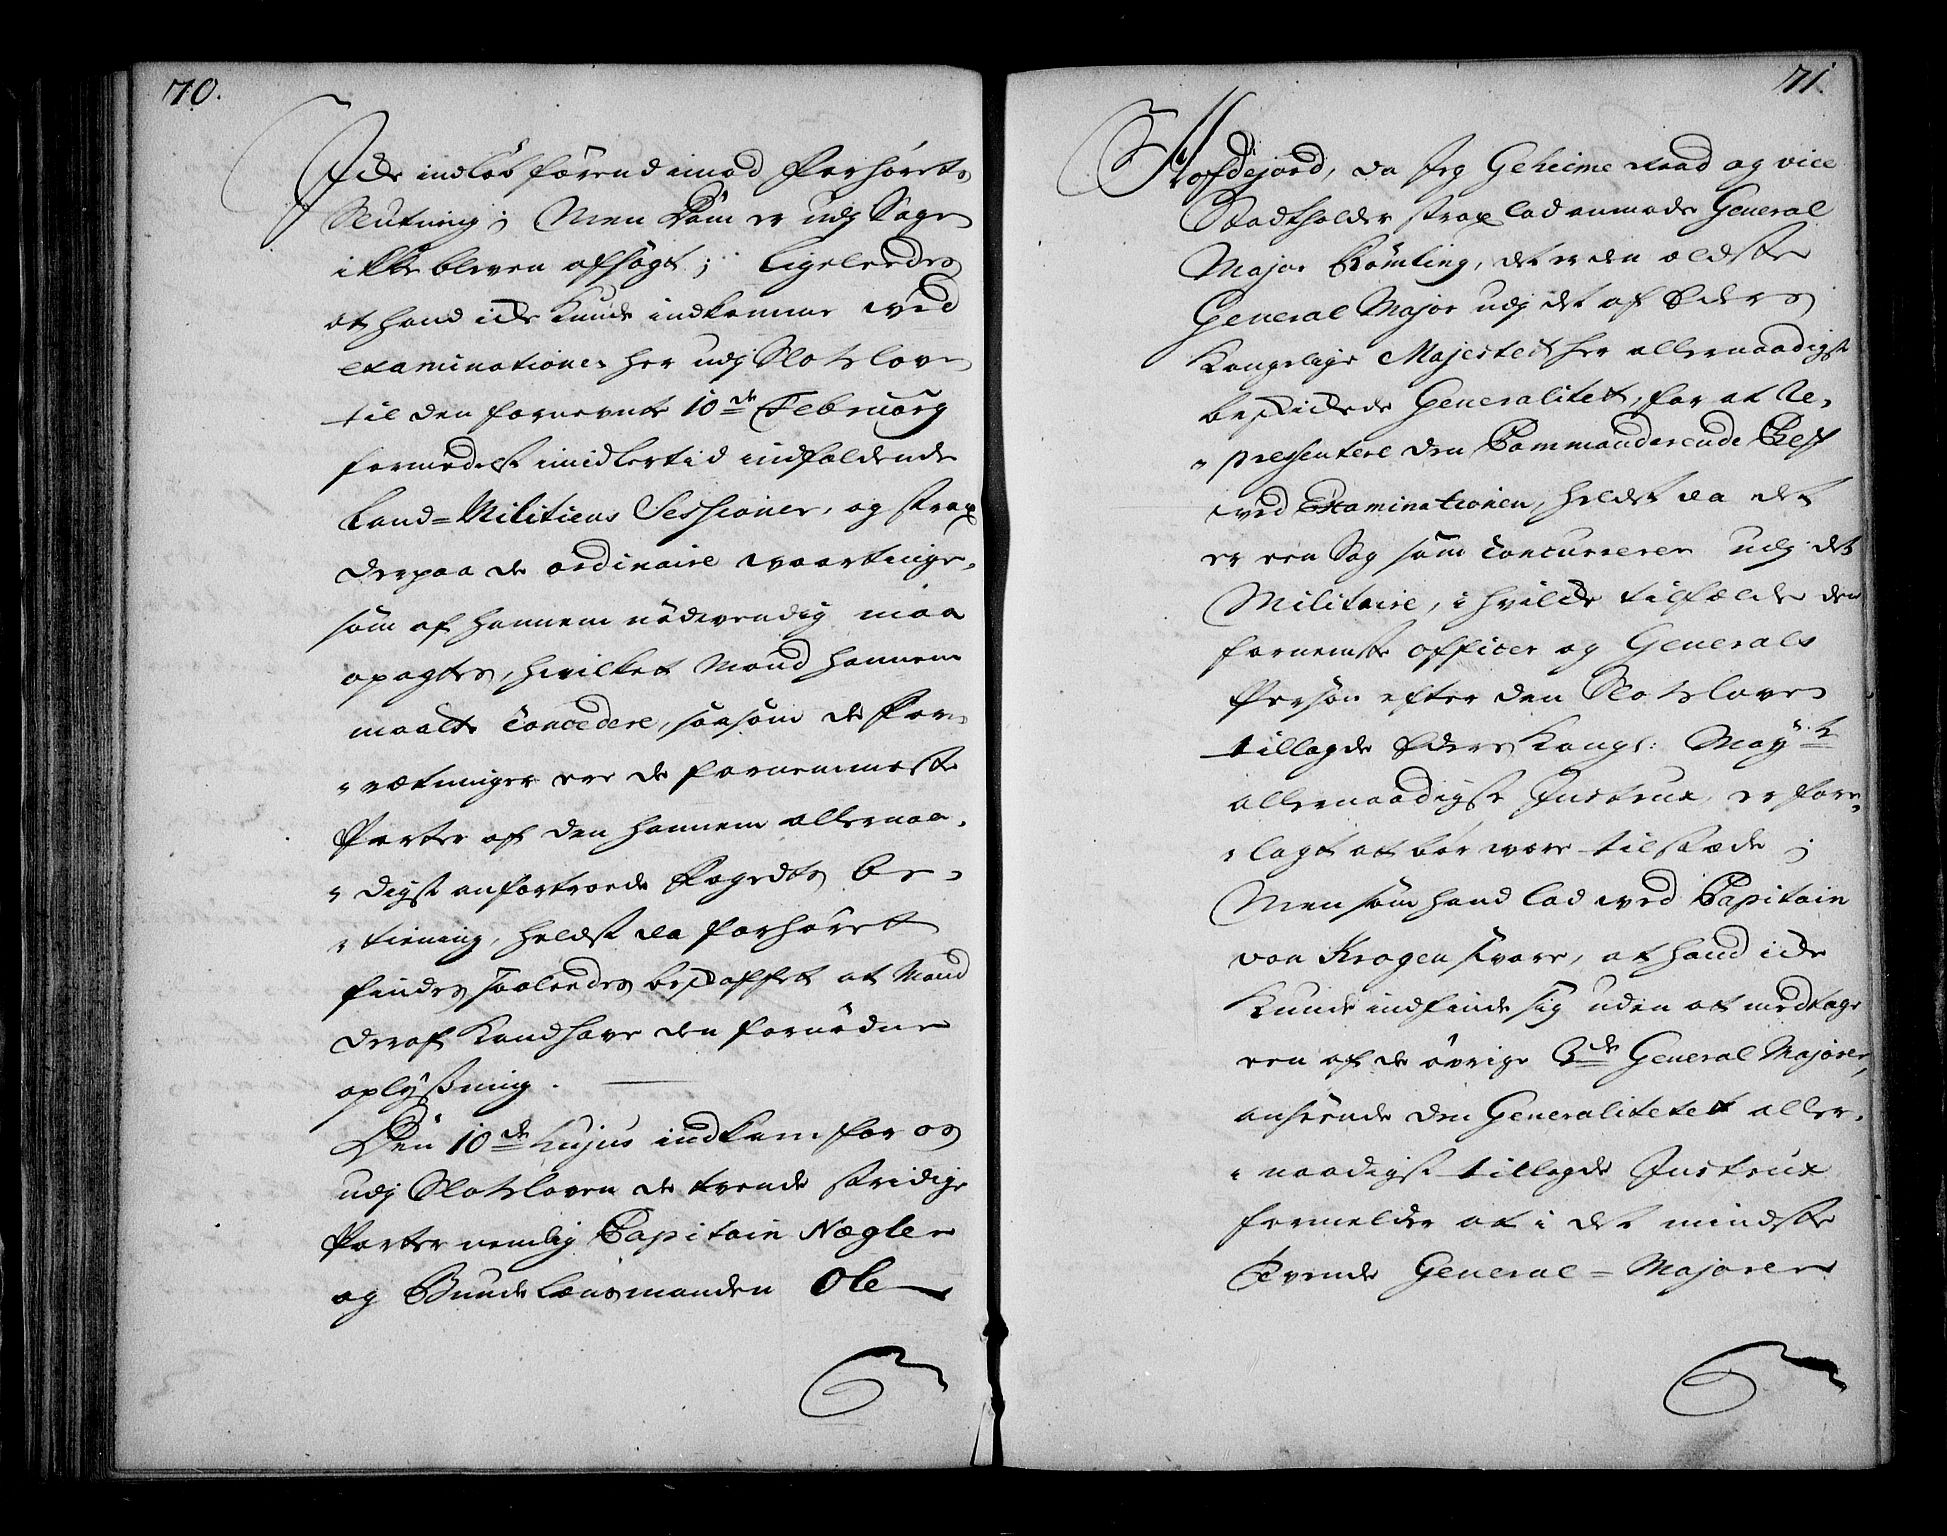 70.
Icke indløb førend imod Forhørets
Slutning; Men Dom er udj Sagen
ikke bleven afsagt; ligeleedes
at hand icke kunde indkomme ved
examinationen her udj Slotsloven
til den fornevnte 10de February
formedelst imidlertid indfaldende
Land-Militiens Sessioner, og strax
derpaa de ordinaire Waartinge,
som af hannem nødvendig maa
opagtes, hvilket Mand hannem
maatte concedere, saasom de For„
„rætninger ere de fornemmeste
Parter af den hannem allernaa„
„digst anfortroede Fogedts be„
„tiening, heldst da Forhøret
findes saaleedes beskaffet at Mand
deraf kand have den fornødne
oplyßning.
Den 10de hujus indkom for os
udj Slotsloven de tvende stridige
Parter nemlig Capitain Nægler
og Bunde Lænsmanden Ole
71.
Hofdejord, da Jeg Geheime Raad og vice
Stadtholder strax lod anmode General
Major Rømling, det er den eldste
General Major udj det af Eders
Kongelige Majestet her allernaadigst
beskickede Generalitet, for at Re„
„præsentere den Commanderende Chef
ved Examinationen, heldst da det
er een Sag som concurrerer udj det
Militaire, i hvilcke tilfælde den
fornemste officer og Generals
Person efter den Slotsloven
tillagde Eders Kongl: Mayts
allernaadigste Instrux, er fore„
„lagt at bør være tilstæde;
Men som hand lod ved Capitain
von Krogen svare, at hand icke
kunde indfinde sig uden at medtage
een af de øvrige 3de General Majorer,
ansende den Generalitetet aller„
„naadigst tillagde Instrux
formelder at i det mindste
tvende General-Majorer